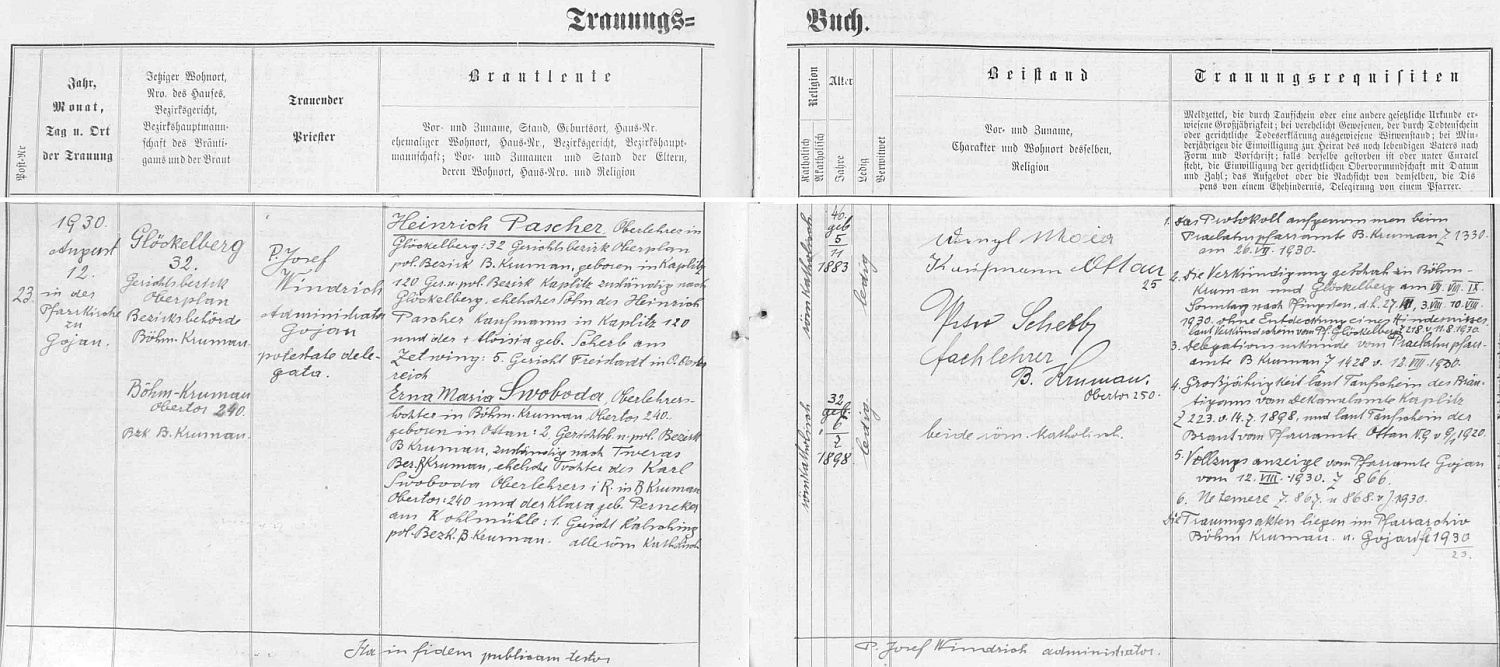 Trauungs=
Buch.
Post-Nr
Jahr,
Monat,
Tag u. Ort
der Trauung
Jetziger Wohnort,
Nro. des Hauses,
Bezirksgericht,
Bezirkshauptmann-
schaft des Bräuti-
gams und der Braut
Trauender
Priester
Brautleute
Vor- und Zuname, Stand, Geburtsort, Haus-Nr.
ehemaliger Wohnort, Haus-Nr., Bezirksgericht, Bezirkshaupt-
mannschaft; Vor- und Zunamen und Stand der Eltern,
deren Wohnort, Haus-Nro. und Religion
Religion
Katholisch
Akatholisch
Alter
Jahre
Ledig
Verwitwet
Beistand
Vor- und Zuname,
Charakter und Wohnort desselben,
Religion
Trauungsrequisiten
Meldzettel, die durch Taufschein oder eine andere gesetzliche Urkunde er-
wiesene Großjährigkeit; bei verehelicht Gewesenen, der durch Todtenschein
oder gerichtliche Todeserklärung ausgewiesene Witwenstand; bei Min-
derjährigen die Einwilligung zur Heirat des noch lebendigen Vaters nach
Form und Vorschrift; falls derselbe gestorben ist oder unter Curatel
steht, die Einwilligung der gerichtlichen Obervormundschaft mit Datum
und Zahl; das Aufgebot oder die Nachsicht von demselben, die Dis
pens von einem Ehehindernis, Delegirung von einem Pfarrer.
23.
1930
August
12.
in der
Pfarrkirche
zu
Gojau.
Glöckelberg
32.
Gerichtsbezirk
Oberplan
Bezirksbehörde
Böhm-Krumau
Böhm-Krumau
Obertor 240.
Bzk B. Krumau.
P. Josef
Windrich
Administrator
Gojau
potestate dele-
gata.
Heinrich Pascher, Oberlehrer in
Glöckelberg: 32 Gerichtsbezirk Oberplan
pol. Bezirk B. Krumau, geboren in Kaplitz
120 Ger. u. pol. Bezirk Kaplitz zuständig nach
Glöckelberg, ehelicher Sohn des Heinrich
Pascher Kaufmann in Kaplitz 120
und der Aloisia geb. Scherb aus
Zetwing: 5. Gericht Freistadt in O. Oester
reich
Erna Maria Swoboda, Oberlehrers-
tochter in Böhm. Krumau Obertor 240.
geboren in Ottau: 2, Gerichtsb. u. pol. Bezirk
B Krumau, zuständig nach Tweras
Bez. B Krumau, eheliche Tochter des Karl
Swoboda Oberlehrers i R. in B Krumau
Obertor: 240 und der Klara geb. Perneker
aus Kohlmühle: 1. Gericht Kalsching
pol. Bezk. B. Krumau. alle röm katholisch
römkatholisch
46.
geb
5
11
1883
ledig
römkatholisch
32
geb.
6
2
1898
ledig
Kaufmann Ottau
25
Fachlehrer
B. Krumau.
Obertor 250.
beide röm. katholisch.
1. Das Protokoll aufgenommen beim
Praelaturpfarramte B. Krumau Z 1330.
am 26. VII. 1930.
2. Die Verkündigung geschah in Böhm-
Krumau und Glöckelberg am VII. VIII. IX.
Sonntag nach Pfingsten, d. h. 27. VII, 3. VIII. 10. VIII.
1930. ohne Entdeckung eines Hindernisses
laut Verkündschein von Pf. Glöckelberg Z 218 v. 11.8.1930.
3. Delegationsurkunde vom Praelaturpfarr-
amte B Krumau Z 1428 v. 12. VIII 1930.
4. Großjährigkeit laut Taufschein des Bräu-
tigams vom Dekanalamte Kaplitz
Z 223 v. 14.7. 1898, und laut Taufschein der
Braut vom Pfarramte Ottau
5. Vollzugsanzeige vom Pfarramte Gojau
vom 12. VIII. 1930. Z 866.
6. Ne temere Z. 867. u 868. v J 1930.
Die Trauungsakten liegen im Pfarrarchiv
Böhm Krumau. u. Gojau 1930
23.
Ita in fidem publicam testor
P. Josef Windrich administrator.